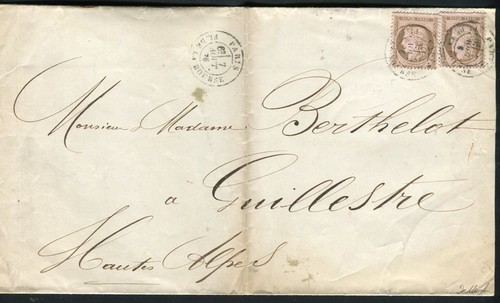 PARIS
PL. DE LA BOURSE
Monsieur & Madame Berthelot
à Guillestre
Hautes Alpes